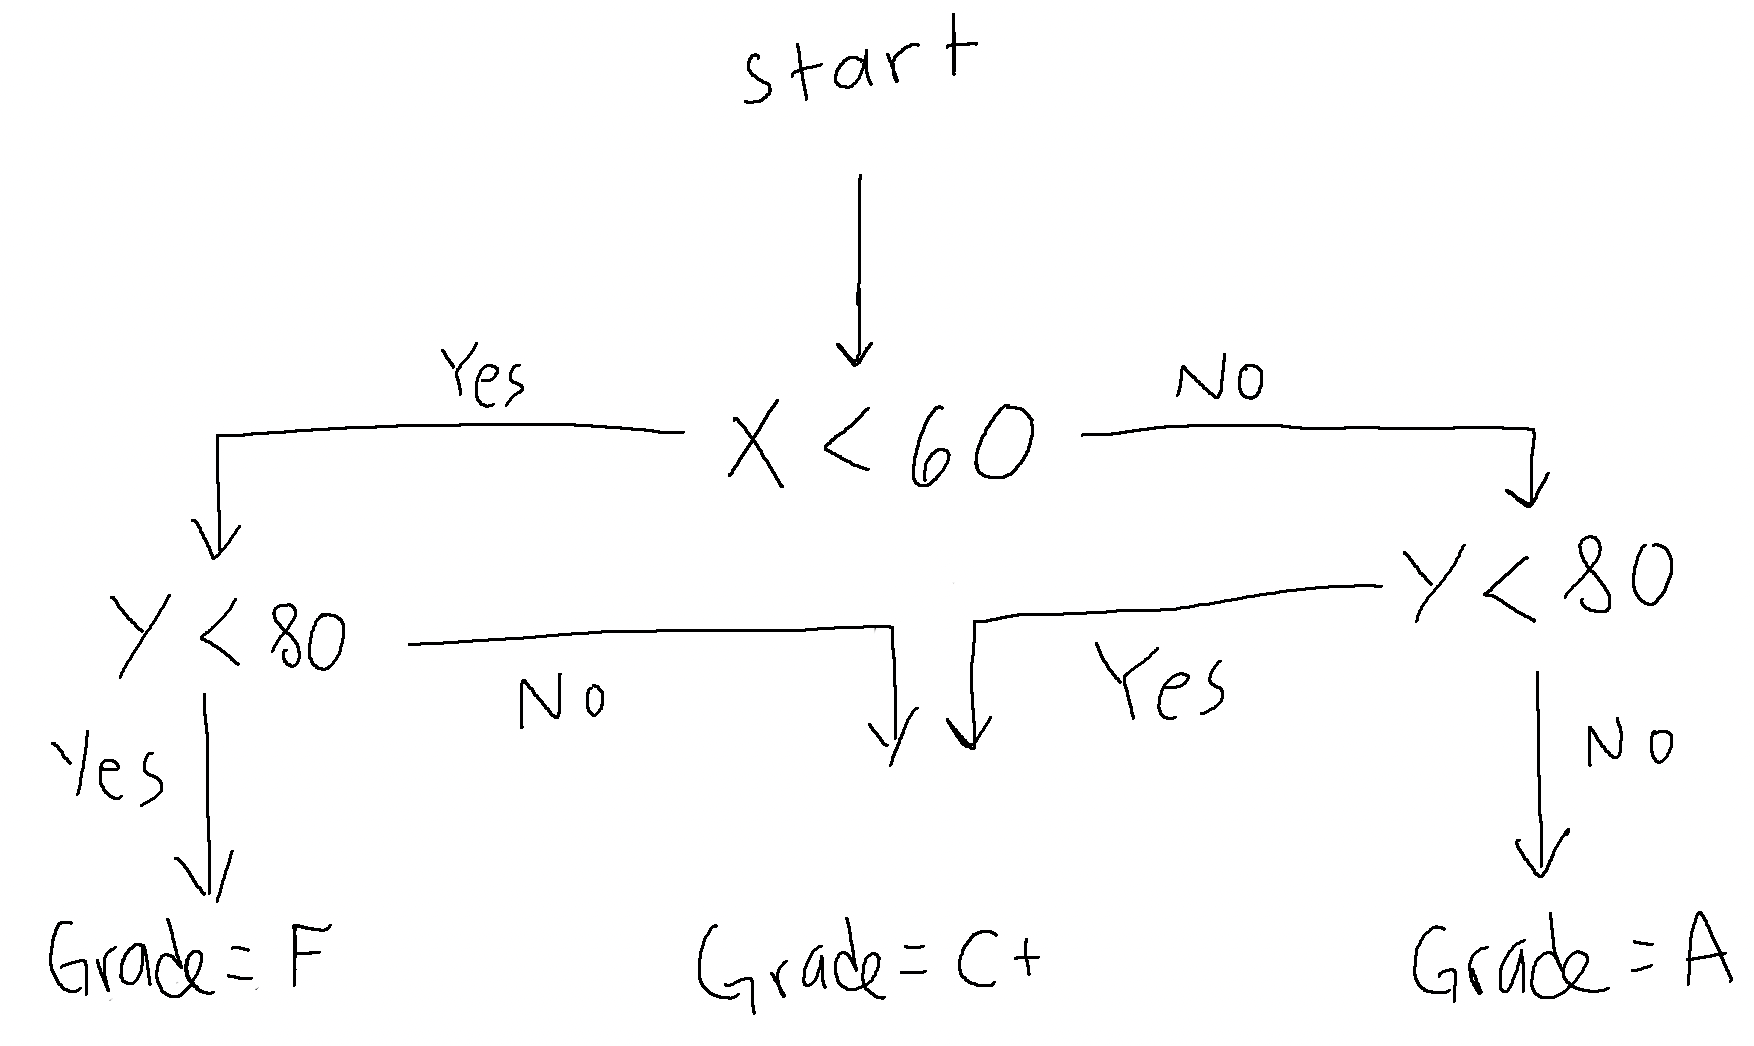 start
Yes
No
X < 60
Y < 80
Y < 80
No
Yes
Yes
No
Grade = F
Grade = C+
Grade = A